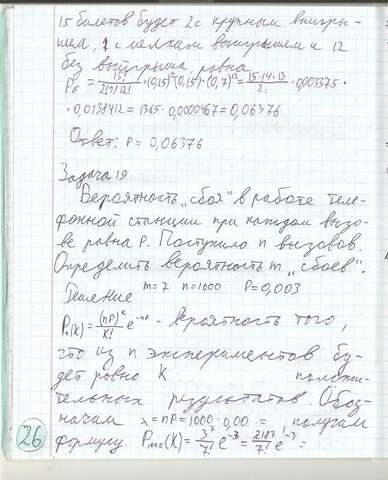 15 билетов будет 2 с крупным выигры-
шем, 1 с мелким выигрышем и 12
без выигрыша равна
P₆ = 15!/(2!1!12!) · (0,15)²(0,15)·(0,7)¹² = 15·14·13/2 · 0,003375 ·
· 0,0138412 = 1365 · 0,0000467 = 0,06376
Ответ: P = 0,06376
Задача 19
Вероятность „сбоя" в работе теле-
фонной станции при каждом вызо-
ве равна P. Поступило n вызовов.
Определить вероятность m „сбоев".
Решение m = 7 n = 1000 P = 0,003
Pₙ(K) = (np)ᴷ/K! e⁻ⁿᵖ - вероятность того,
что из n экспериментов бу-
дет равно K положи-
тельных результатов. Обоз-
начам λ = np = 1000 · 0,00 = , получам
формулу. P₁₀₀₀(K) = 3⁷/7! e⁻³ = 2187/7! e⁻³ =
26